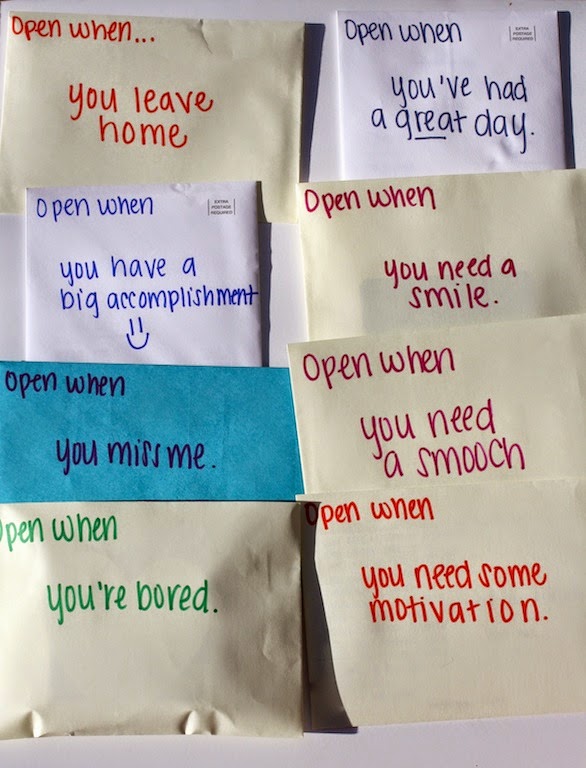 Open when...
you leave
home
Open when
EXTRA
POSTAGE
REQUIRED
you've had
a great day.
Open when
EXTRA
POSTAGE
REQUIRED
you have a
big accomplishment
Open when
you need a
smile.
Open when
you miss me.
Open when
you need
a smooch
Open when
you're bored.
Open when
you need some
motivation.